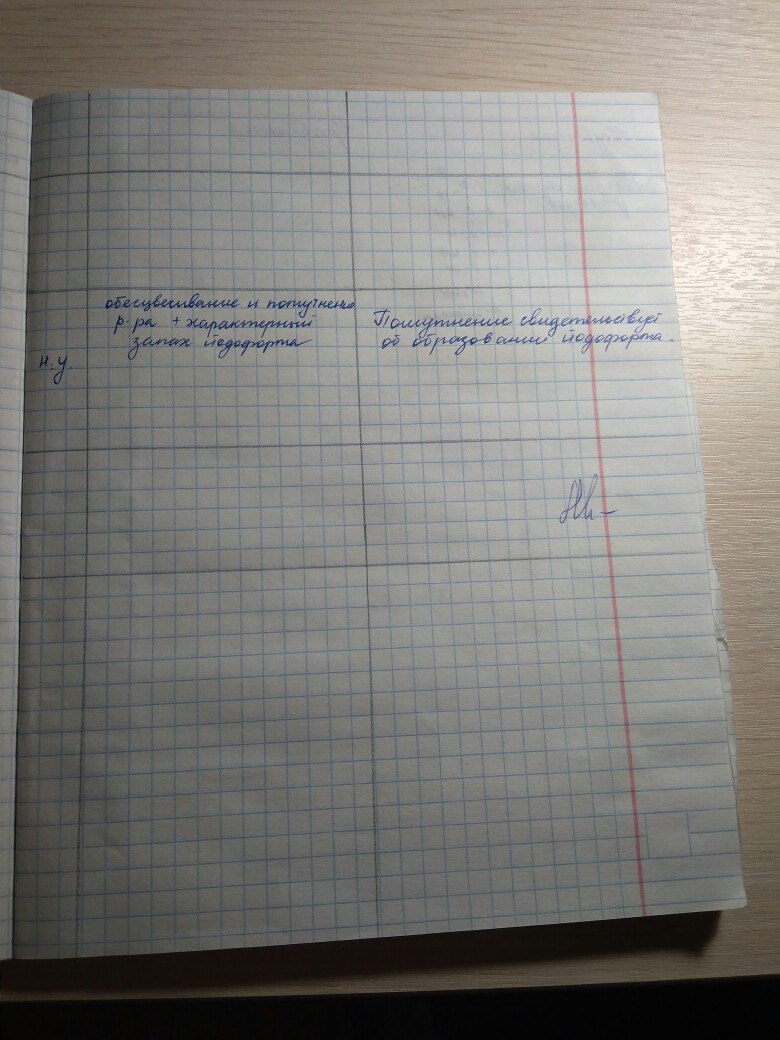 обесцвечивание и помутнение
р-ра + характерный
запах йодоформа
н.у.
Помутнение свидетельствует
об образовании йодоформа.